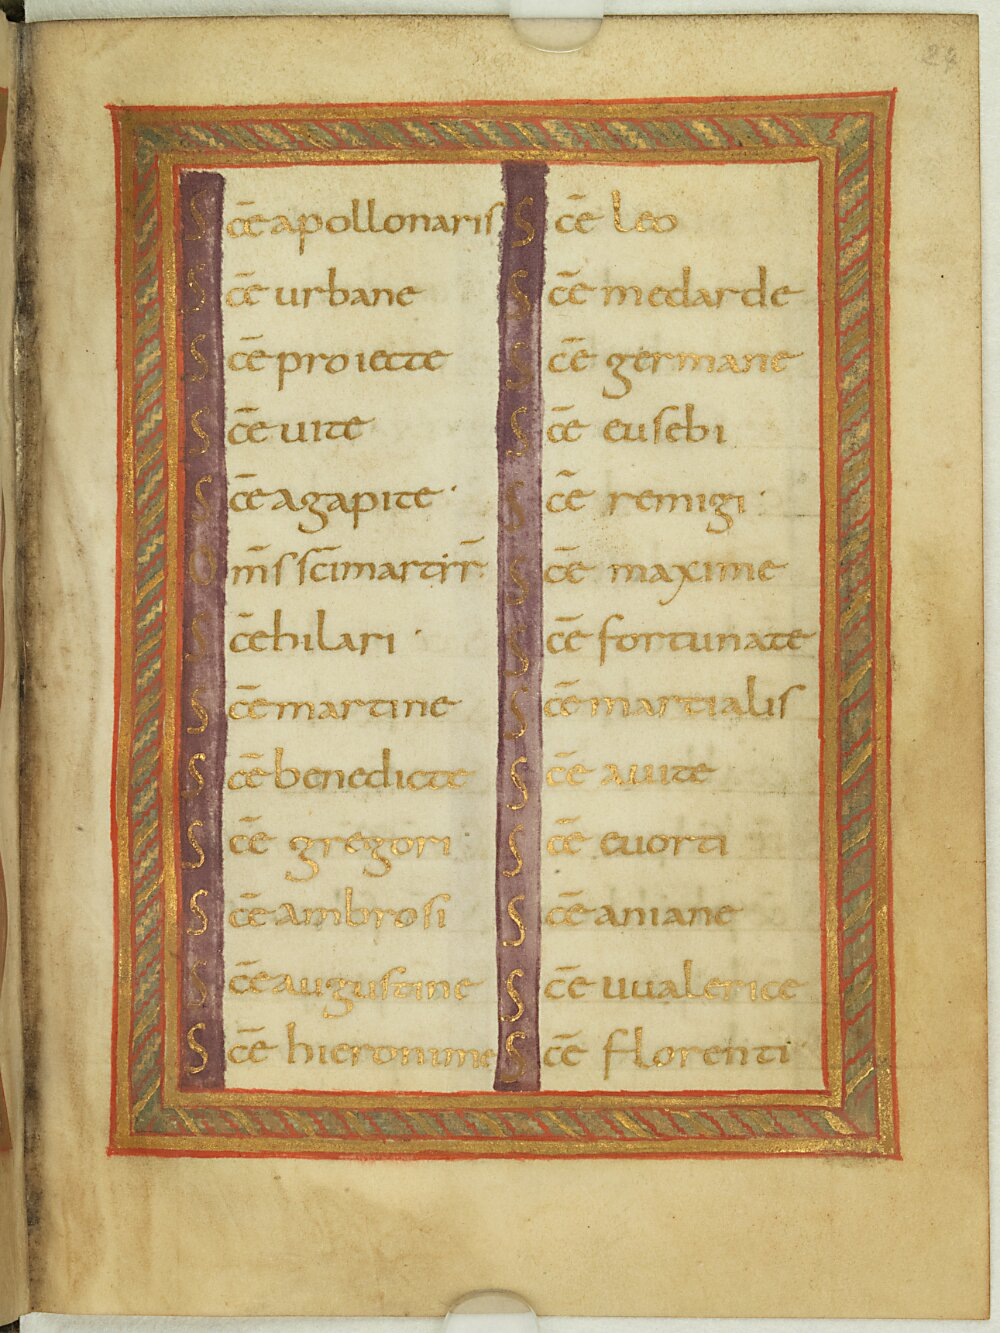 S c̄e apollonaris
S c̄e urbane
S c̄e proiecte
S c̄e uite
S c̄e agapite ·
O m̄s sc̄i martirr̄
S c̄e hilari ·
S c̄e martine
S c̄e benedicte
S c̄e gregori
S c̄e ambrosi
S c̄e augustine
S c̄e hieronime
S c̄e leo
S c̄e medarde
S c̄e germane
S c̄e eusebi
S c̄e remigi ·
S c̄e maxime
S c̄e fortunate
S c̄e martialis
S c̄e auite
S c̄e euorti
S c̄e aniane
S c̄e uualerice
S c̄e florenti